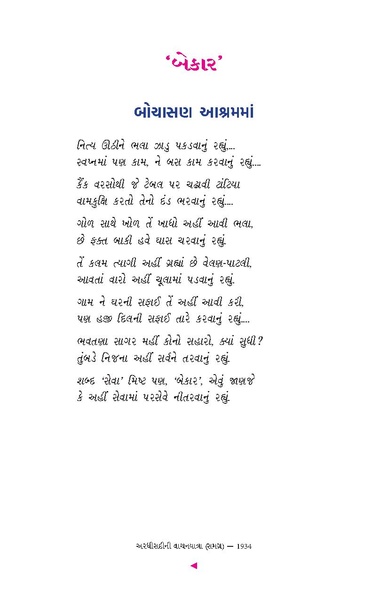 ‘બેકાર’
બોચાસણ આશ્રમમાં
નિત્ય ઊઠીને ભલા ઝાડુ પકડવાનું રહ્યું,...
સ્વપ્નમાં પણ કામ, ને બસ કામ કરવાનું રહ્યું....
કૈંક વરસોથી જે ટેબલ પર ચઢાવી ટાંટિયા
વામકુક્ષિ કરતો તેનો દંડ ભરવાનું રહ્યું....
ગોળ સાથે ખોળ તેં ખાધો અહીં આવી ભલા,
છે ફક્ત બાકી હવે ઘાસ ચરવાનું રહ્યું.
તેં કલમ ત્યાગી અહીં ગ્રહ્યાં છે વેલણ-પાટલી,
આવતાં વારો અહીં ચૂલામાં પડવાનું રહ્યું.
ગામ ને ઘરની સફાઈ તેં અહીં આવી કરી,
પણ હજી દિલની સફાઈ તારે કરવાનું રહ્યું....
ભવતણા સાગર મહીં કોનો સહારો, ક્યાં સુધી?
તુંબડે નિજના અહીં સર્વને તરવાનું રહ્યું.
શબ્દ ‘સેવા’ મિષ્ટ પણ, ‘બેકાર’, એવું જાણજે
કે અહીં સેવામાં પરસેવે નીતરવાનું રહ્યું.
અરધીસદીની વાચનયાત્રા (સમગ્ર) — 1934